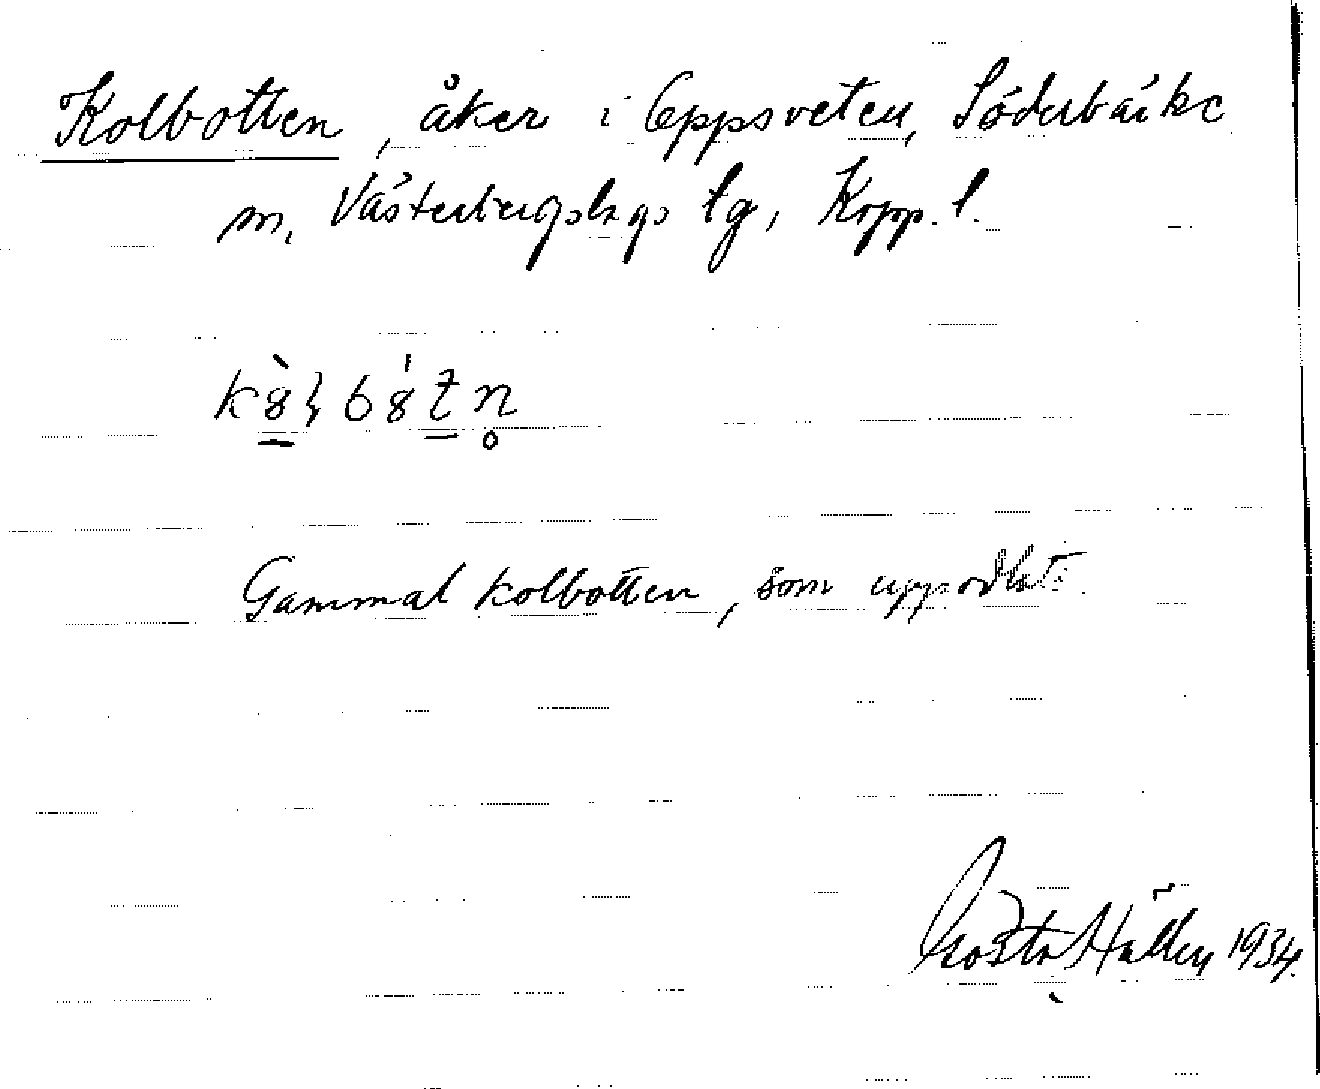 Kolbotten, åker i Eppsveten, Söderbärke
m. Västerbergslags tg, Kopp. l.
Gammal kolbotten, som uppodlats.
Gösta Hällen 1934.